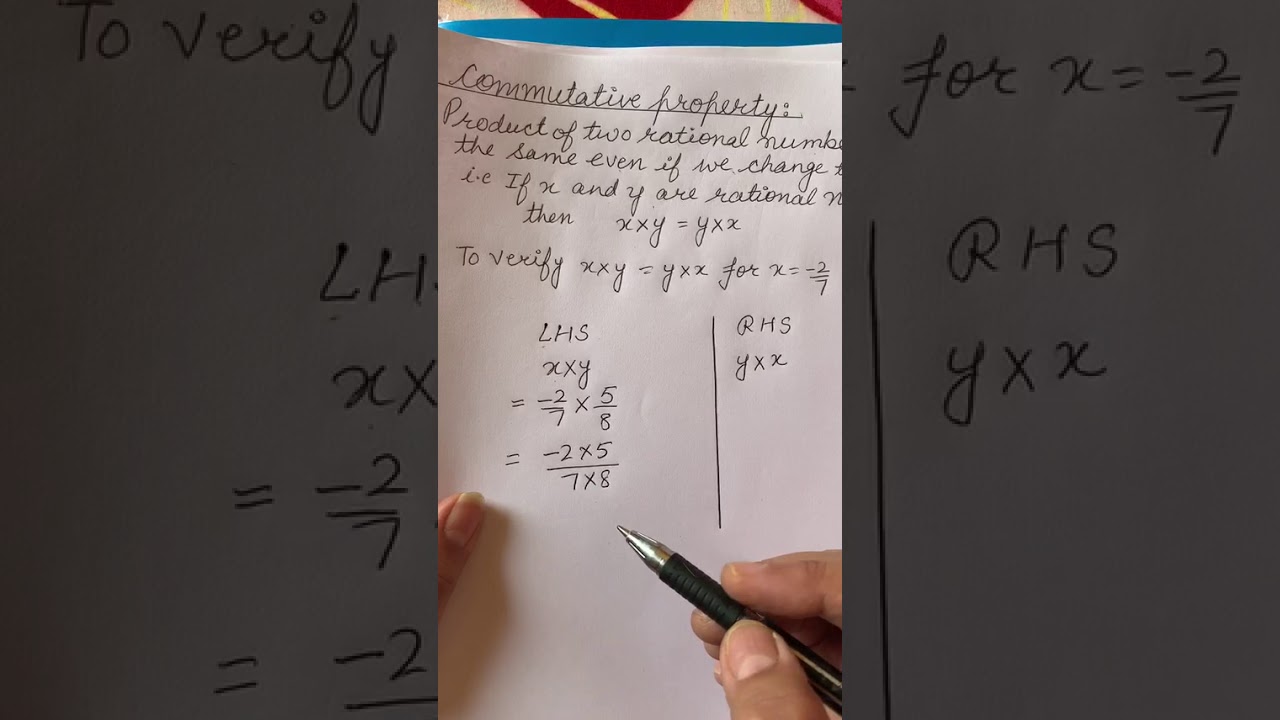 Commutative property:
Product of two rational numbe
the same even if we change t
i.e If x and y are rational n
then x×y = y×x
To verify x×y = y×x for x = -2/7
LHS
x×y
= -2/7 × 5/8
= -2×5/7×8
RHS
y×x
To verify
LHS
x×
= -2/7
= -2
for x = -2/7
RHS
y×x